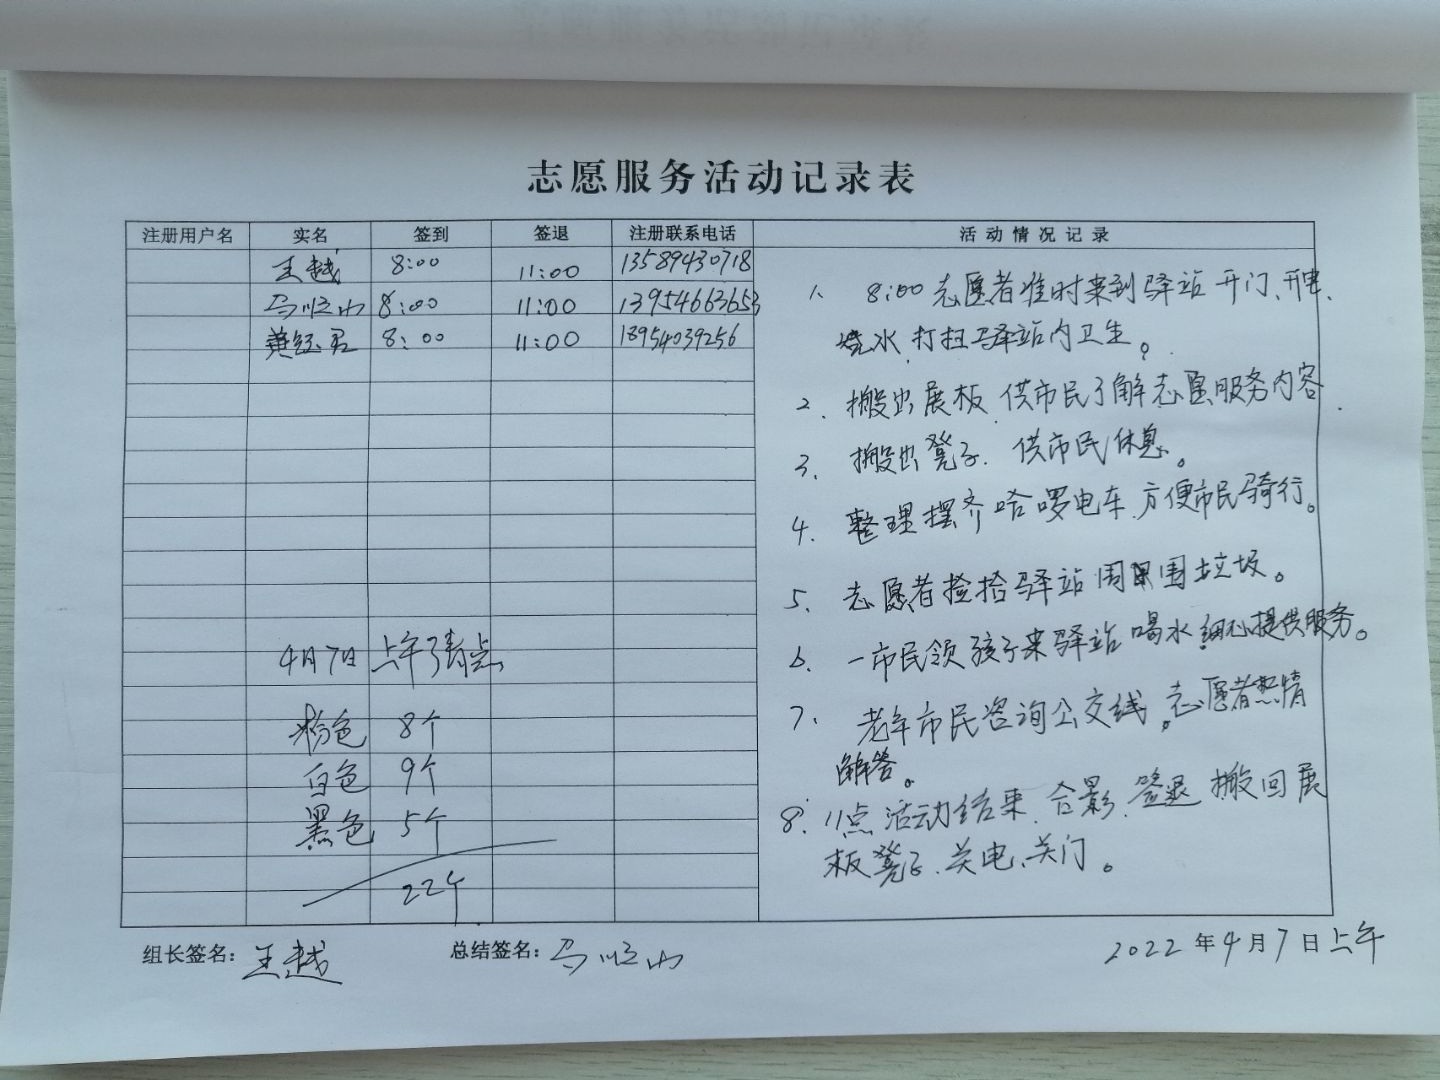 志愿服务活动记录表
注册用户名 实名 签到 签退 注册联系电话 活动情况记录
王越 8:00 11:00 13589430718
马顺山 8:00 11:00 13954663653
黄经君 8:00 11:00 18954039256
1. 8:00志愿者准时来到驿站开门、开电、
烧水、打扫驿站内卫生。
2、搬出展板、供市民了解志愿服务内容.
3、搬出凳子、供市民休息。
4、整理摆齐哈啰电车、方便市民骑行。
5、志愿者捡拾驿站周围垃圾。
6、一市民领孩子来驿站喝水细心提供服务。
7、老年市民咨询公交线。志愿者热情
解答。
8、11点活动结束、合影、签退、搬回展
板凳子、关电、关门。
4月7日上午清点
粉色 8个
白色 9个
黑色 5个
22个
组长签名：王越 总结签名：马顺山 2022年4月7日上午